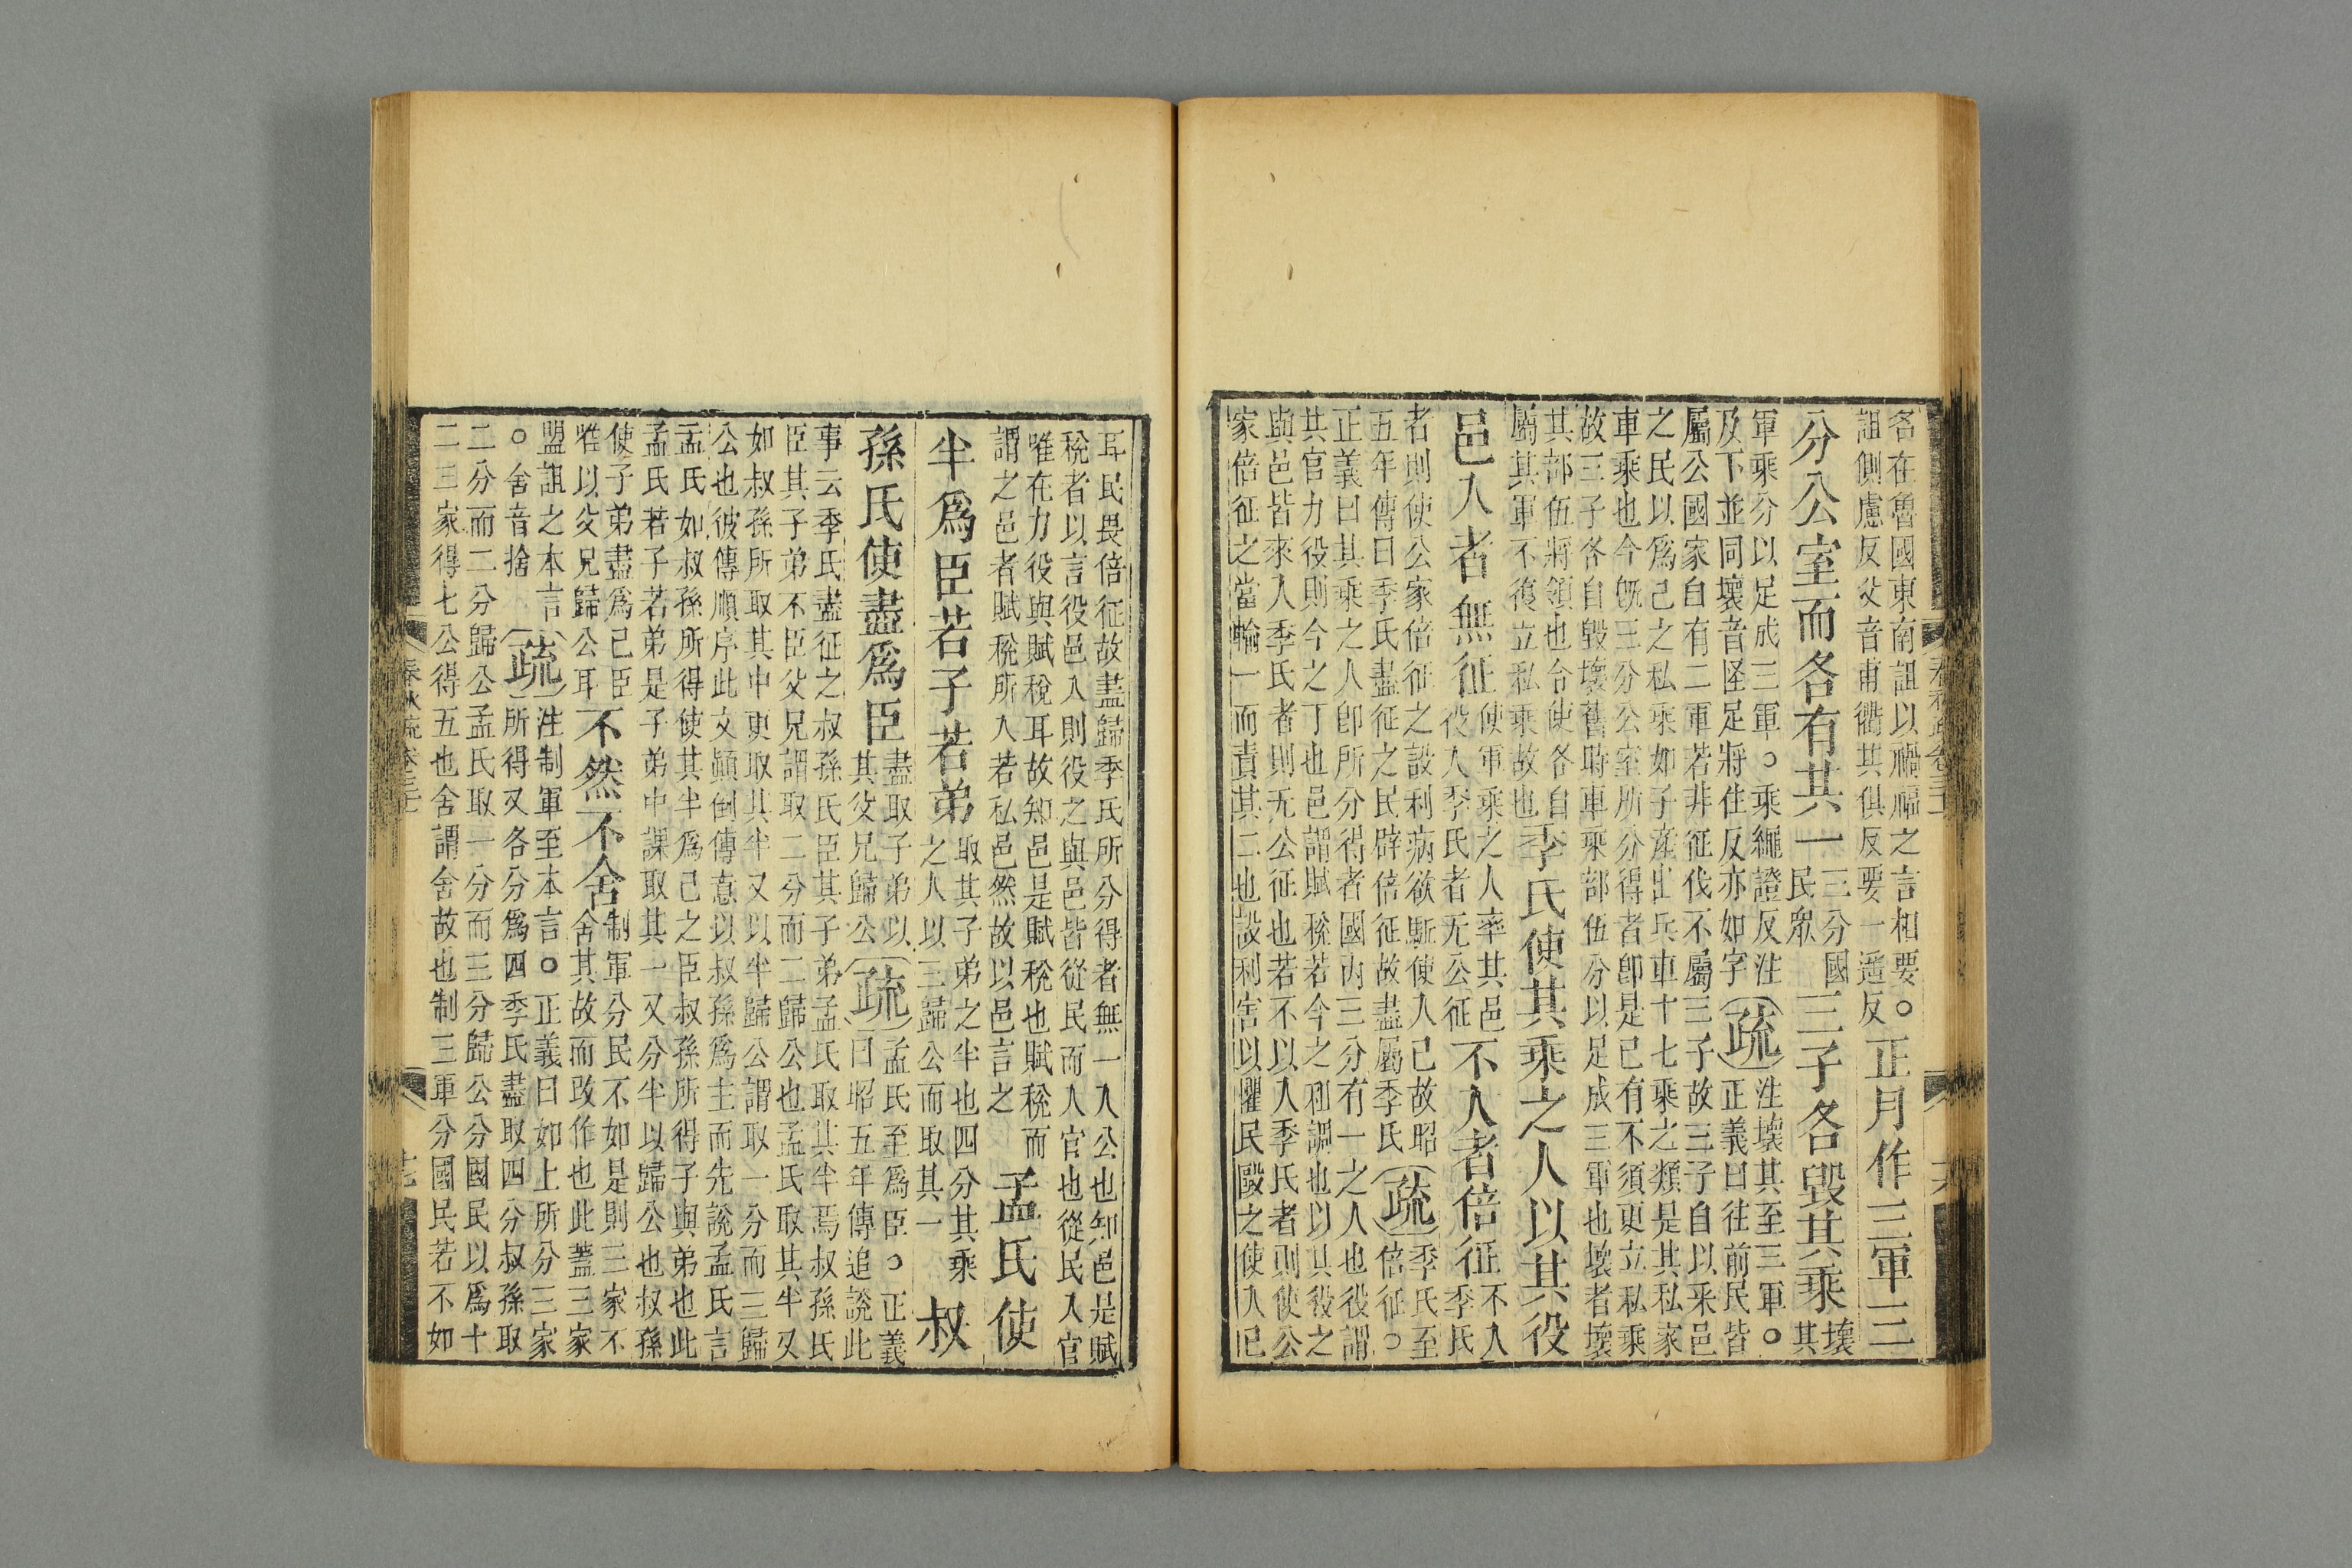 各在魯國東南詛以禍福之言相要○正月作三軍三
詛側慮反父音甫衢其俱反要一遥反
分公室而各有其一三分國民眾三子各毀其乘壞其
軍乘分以足成三軍○乘繩證反注
及下並同壞音怪足將住反亦如字疏注壞其至三軍○
正義曰往前民皆
屬公國家自有二軍若非征伐不屬三子故三子自以采邑
之民以爲己之私乘如子產出兵車十七乘之類是其私家
車乘也今旣三分公室所分得者卽是己有不須更立私乘
故三子各自毀壞舊時車乘部伍分以足成三軍也壞者壞
其部伍將領也令使各自
屬其軍不復立私乘故也季氏使其乘之人以其役
邑入者無征使軍乘之人率其邑
役入季氏者无公征不入者倍征不入
季氏
者則使公家倍征之設利病欲駈使人己故昭
五年傳曰季氏盡征之民辟倍征故盡屬季氏疏季氏至
倍征○
正義曰其乘之人卽所分得者國內三分有一之人也役謂
其官力役則今之丁也邑謂賦稅若今之租調也以其役之
與邑皆來入季氏者則无公征也若不以入季氏者則使公
家倍征之當輸一而責其二也設利害以懼民毆之使入己
耳民畏倍征故盡歸季氏所分得者無一入公也知邑是賦
稅者以言役邑入則役之與邑皆從民而入官也從民入官
唯在力役與賦稅耳故知邑是賦稅也賦稅而
謂之邑者賦稅所入若私邑然故以邑言之孟氏使
半爲臣若子若弟取其子弟之半也四分其乘
之人以三歸公而取其一叔
孫氏使盡爲臣盡取子弟以
其父兄歸公疏孟氏至爲臣○正義
曰昭五年傳追說此
事云季氏盡征之叔孫氏臣其子弟孟氏取其半焉叔孫氏
臣其子弟不臣父兄謂取二分而二歸公也孟氏取其半又
如叔孫所取其中更取其半又以半歸公謂取一分而三歸
公也彼傳順序此文顚倒傳意以叔孫爲主而先說孟氏言
孟氏如叔孫所得使其半爲己之臣叔孫所得子與弟也此
孟氏若子若弟是子弟中課取其一又分半以歸公也叔孫
使子弟盡爲己臣
唯以父兄歸公耳不然不舍制軍分民不如是則三家不
舍其故而改作也此蓋三家
盟詛之本言
○舍音捨疏注制軍至本言○正義曰如上所分三家
所得又各分爲四季氏盡取四分叔孫取
二分而二分歸公孟氏取一分而三分歸公分國民以爲十
二三家得七公得五也舍謂舍故也制三軍分國民若不如